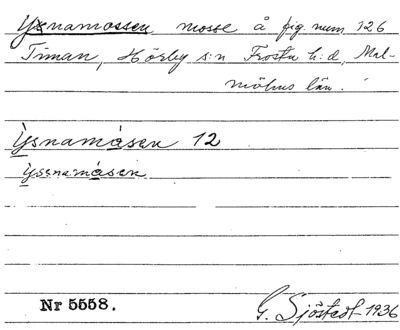 Ysnamossen mosse å fig. num 126
Timan, Hörby s:n Frosta h:d, Mal-
möhus län.
Ỳsnamåsen 12
Ỳssnamåsen
Nr 5558.
G. Sjöstedt 1936